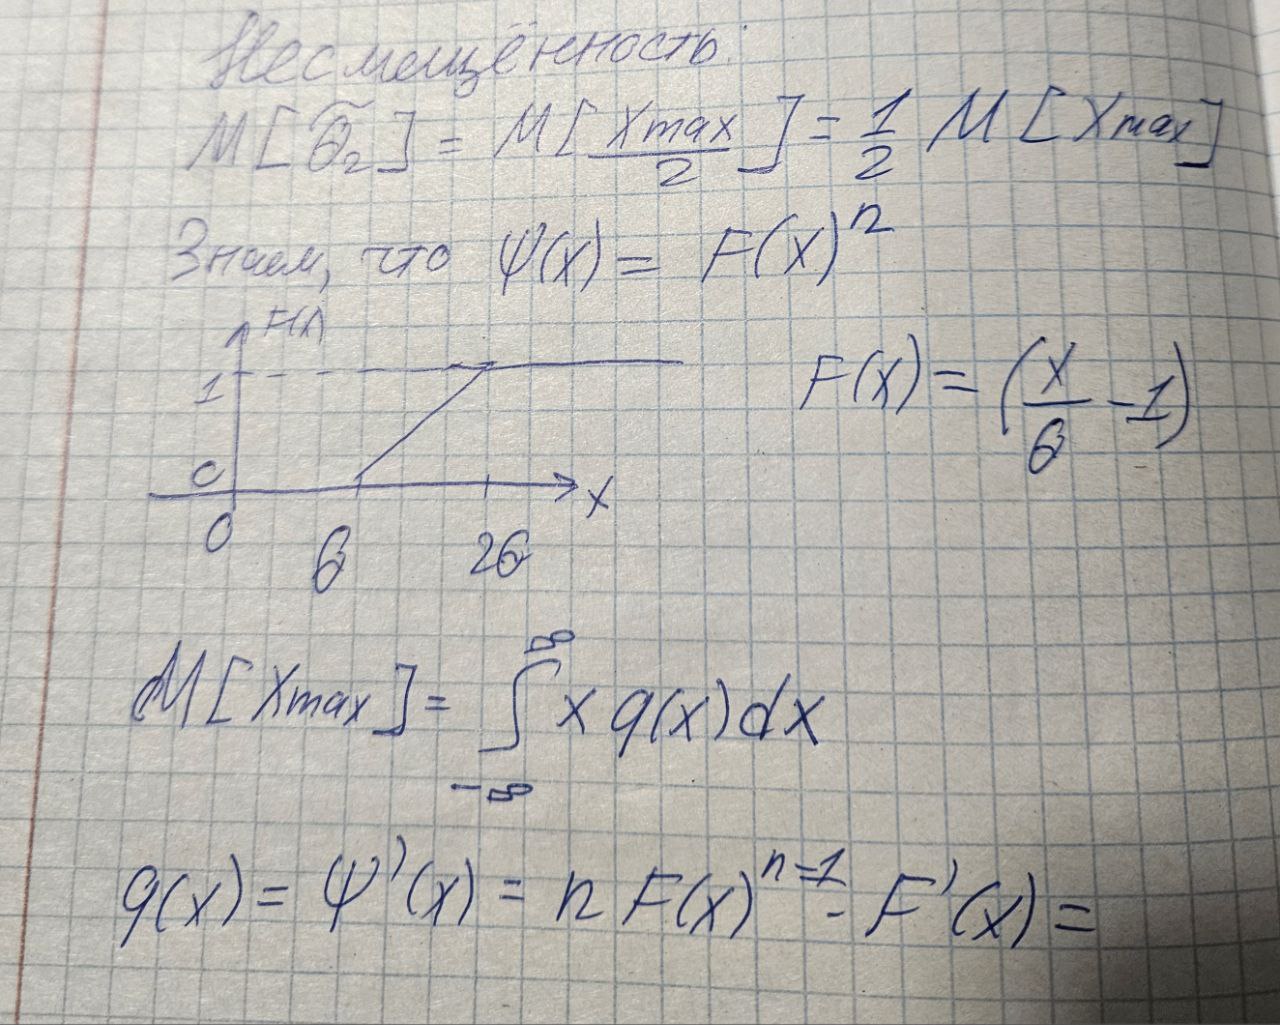 Несмещённость:
M[θ̃₂] = M[Xmax/2] = 1/2 M[Xmax]
Знаем, что Ψ(x) = F(x)ⁿ
F(x)
1
0
0 θ 2θ x
F(x) = (x/θ - 1)
M[Xmax] = ∫_{-∞}^{∞} x q(x)dx
q(x) = Ψ'(x) = n F(x)ⁿ⁻¹ · F'(x) =